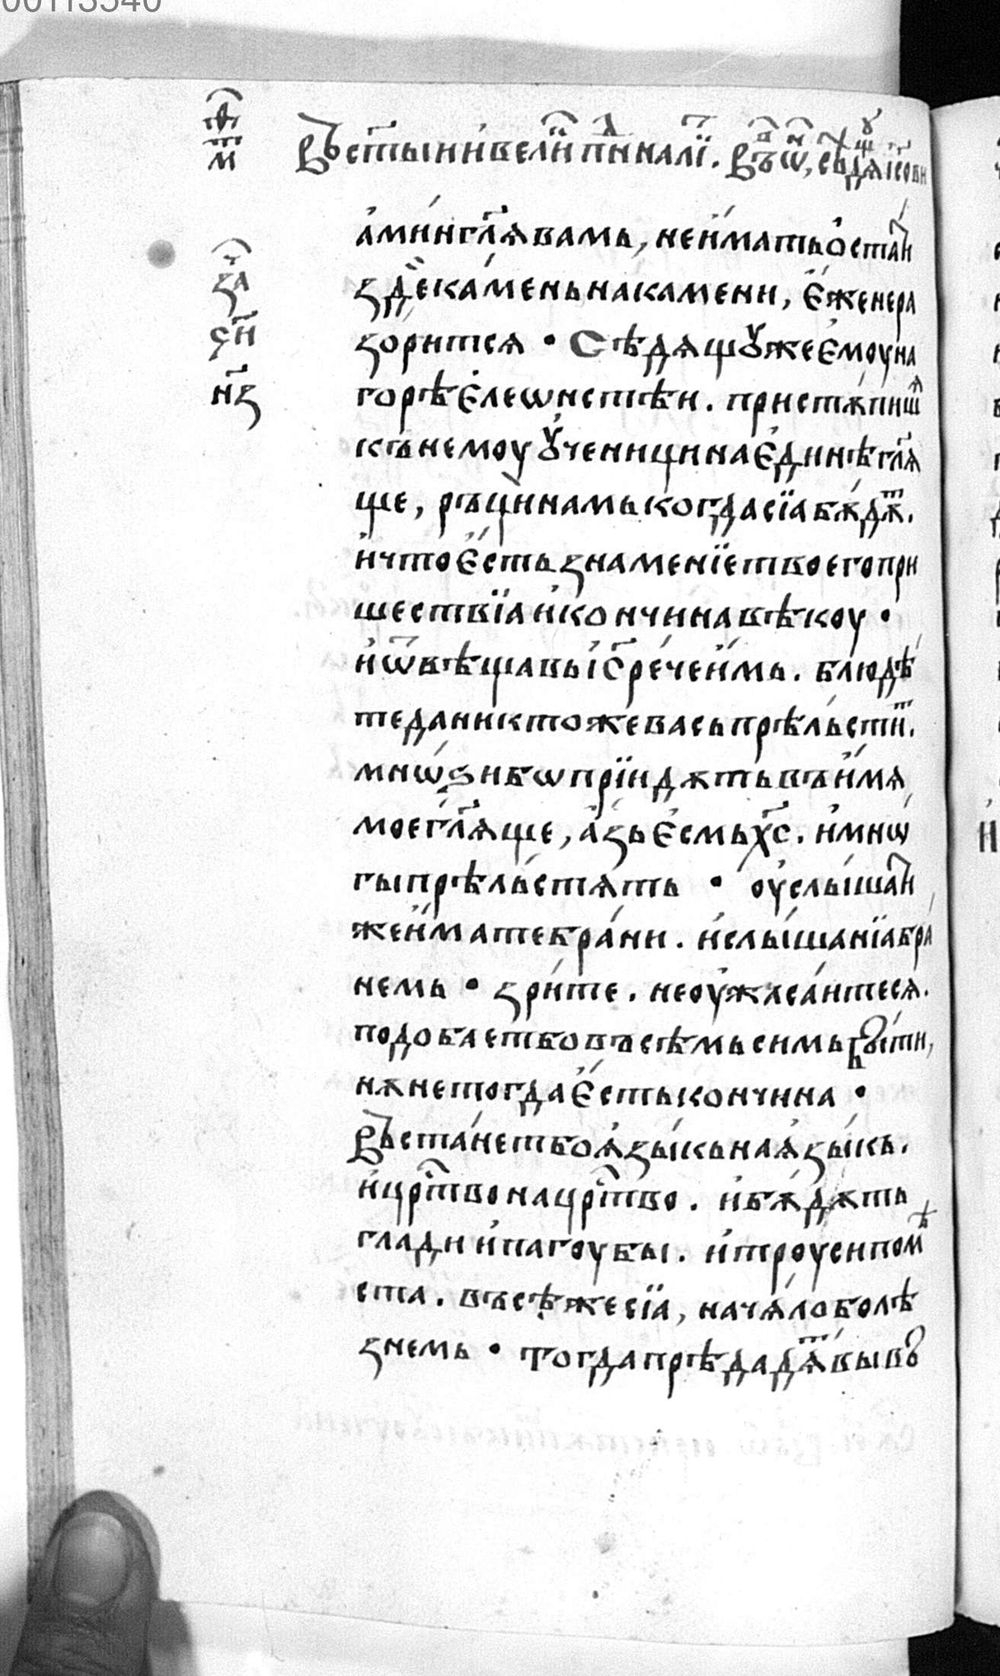 въ ст҃ыи и вели пн
аминь гл҃ѧ вамь, не имать ѡстати
здѣ камень на камени, еже не ра
зоритсѧ • Сѣдѧщꙋ же емоу на
горѣ елеѡнстѣи. пристѫпишѧ
къ немоу ꙋченици на единѣ гл҃ѧ
ще, рьци намь когда сїа бѫдѫт.
и что есть знаменїе твоего при
шествїа и кончина вѣкоу •
и ѿвѣщавь іс҃ рече имь. блюдѣ
те да никтоже вась прѣльстит.
мнѡѕи бѡ прїидѫть въ имѧ
мое гл҃ѧще, азь есмь хс҃. и мнѡ
гы прѣльстѧть • оуслышати
же имате брани. и слышанїа бра
немь • зрите. не оужасаитесѧ.
подобает бо въсѣмь симь быти,
нѫ не тогда есть кончина •
Въстанет бо ѧзыкь на ѧзыкь.
и црс҃тво на црс҃тво. и бѫдѫть
глади и пагоубы. и троуси по мѣ
ста. въсѣ же сїа, начѧло болѣ
знемь • тогда прѣдадѧт вы въ